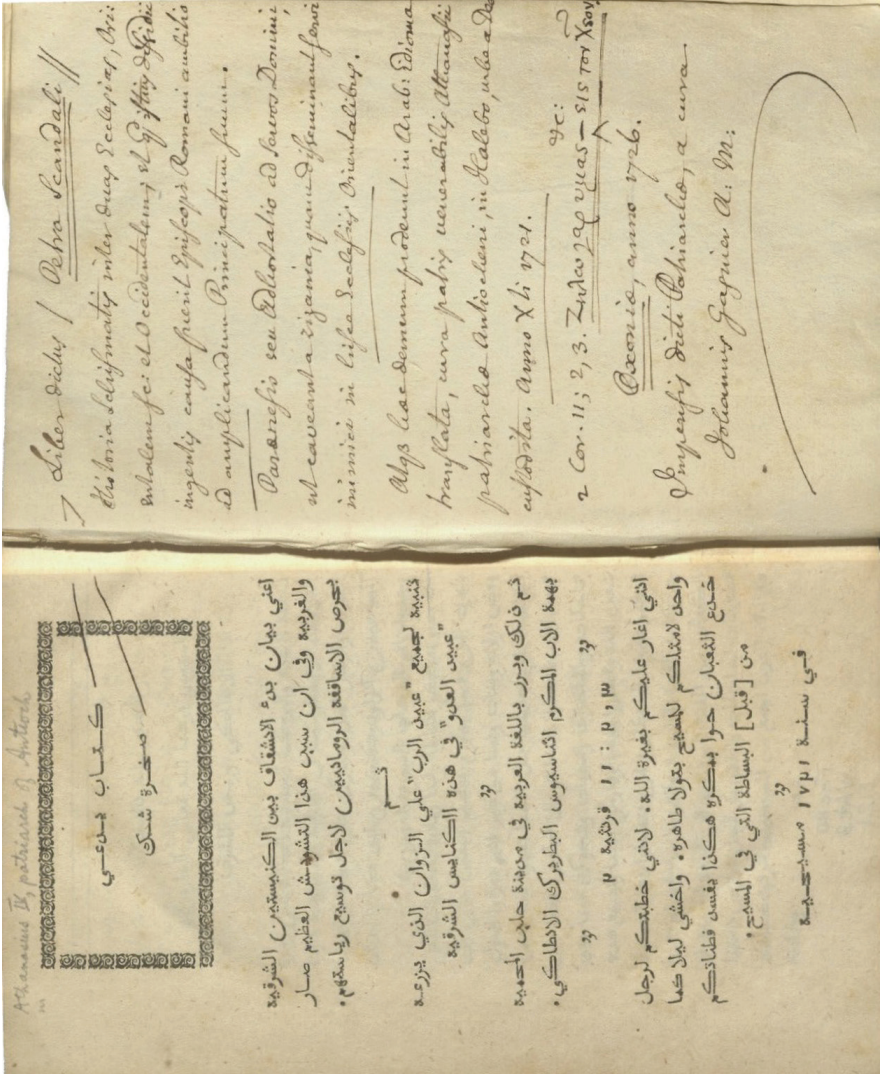 Athanasius IV, patriarch of Antioch
كتاب يدعي
صخرة شك
اعني بيان بدء الانشقاق بين الكنيستين الشرقيه
والغربيه وفي ان سبب هذا التشويش العظيم صار
بحرص الاساقفه الرومانيين لاجل توسيع رياستهم.
ثم
تنبيه لجميع "عبيد الرب" علي الزوان الذي يزرعه
"عبيد العدو" في هذه الكنايس الشرقيه
تم ذلك وبرز باللغة العربيه في مدينة حلب المحميه
بهمة الاب المكرم اثناسيوس البطريرك الانطاكي.
٢ قرنثيه ١١ : ٢ , ٣
انني اغار عليكم بغيرة الله. لانني خطبتكم لرجل
واحد لامثلكم للمسيح بتولا طاهره. واخشي ليلا كما
خدع الثعبان حوا بمكره هكذا يفسد فطناتكم
من [قبل] البساطة التي في المسيح.
في سنة ١٧٢١ مسيحيه
Liber dictus / Petra Scandali //
Historia Schismatis inter duas Ecclesias, Ori:
entalem sc: et Occidentalem; et dissidii
ingentis causa fuerit Episcopi Romani ambitio
ad amplicandum Principatum suum.
Paraenesis seu Adhortatio ad servos Domini,
ut caveant a zizania, quam disseminant servi
inimici in hisce Ecclesiis Orientalibus.
Atq3 haec demum prodeunt in Arab: Edioma
translata, cura patris venerabilis Athanasii
patriarchae Antiocheni, in Halebo, urbe a Deo
custodita. Anno Xti 1721.
2 Cor. 11; 2, 3. Ζηλω γαρ υμας — εις τον Χσον &c:
Oxoniae, anno 1726.
Impensis dicti Patriarchae, a cura
Johannis Gagnier A: M: